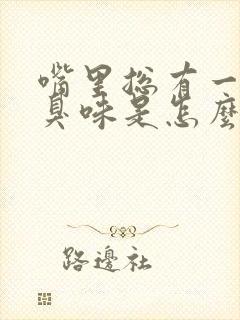 嘴里总有一
臭味是怎麼
路邊社